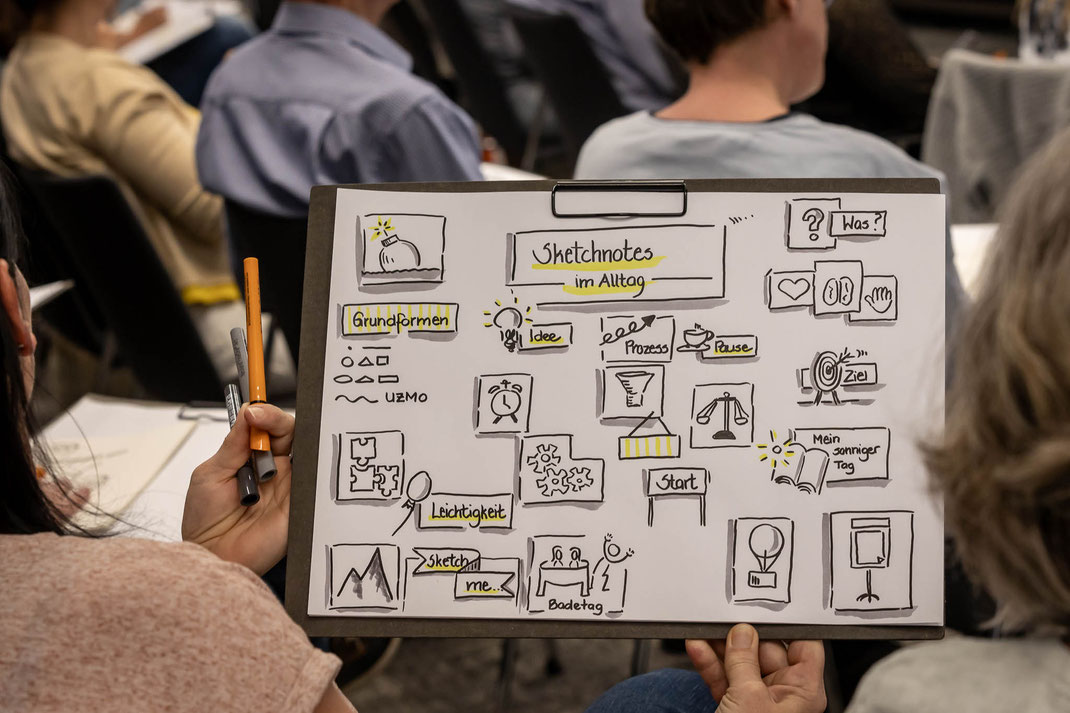 Sketchnotes
im Alltag
Was?
Grundformen
Idee
Prozess
Pause
Ziel
UZMO
Mein
sonniger
Tag
Start
Leichtigkeit
Sketch
me...
Badetag